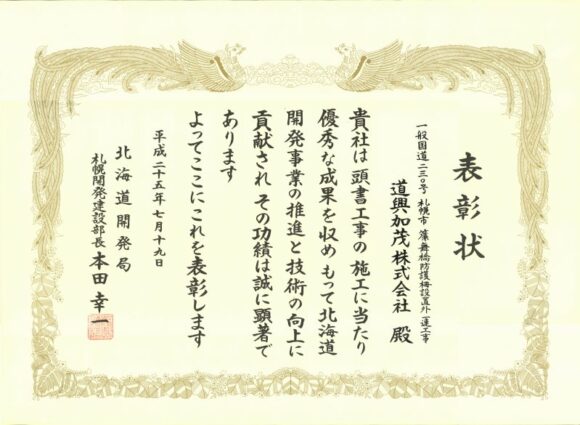 表彰状
一般国道二三〇号 札幌市 簾舞橋防護柵設置外一連工事
道興加茂株式会社 殿
貴社は 頭書工事の 施工に当たり
優秀な成果を収め もって北海道
開発事業の推進と技術の向上に
貢献され その功績は誠に顕著で
あります
よってここに これを表彰します
平成二十五年七月十九日
北海道開発局
札幌開発建設部長 本田幸一